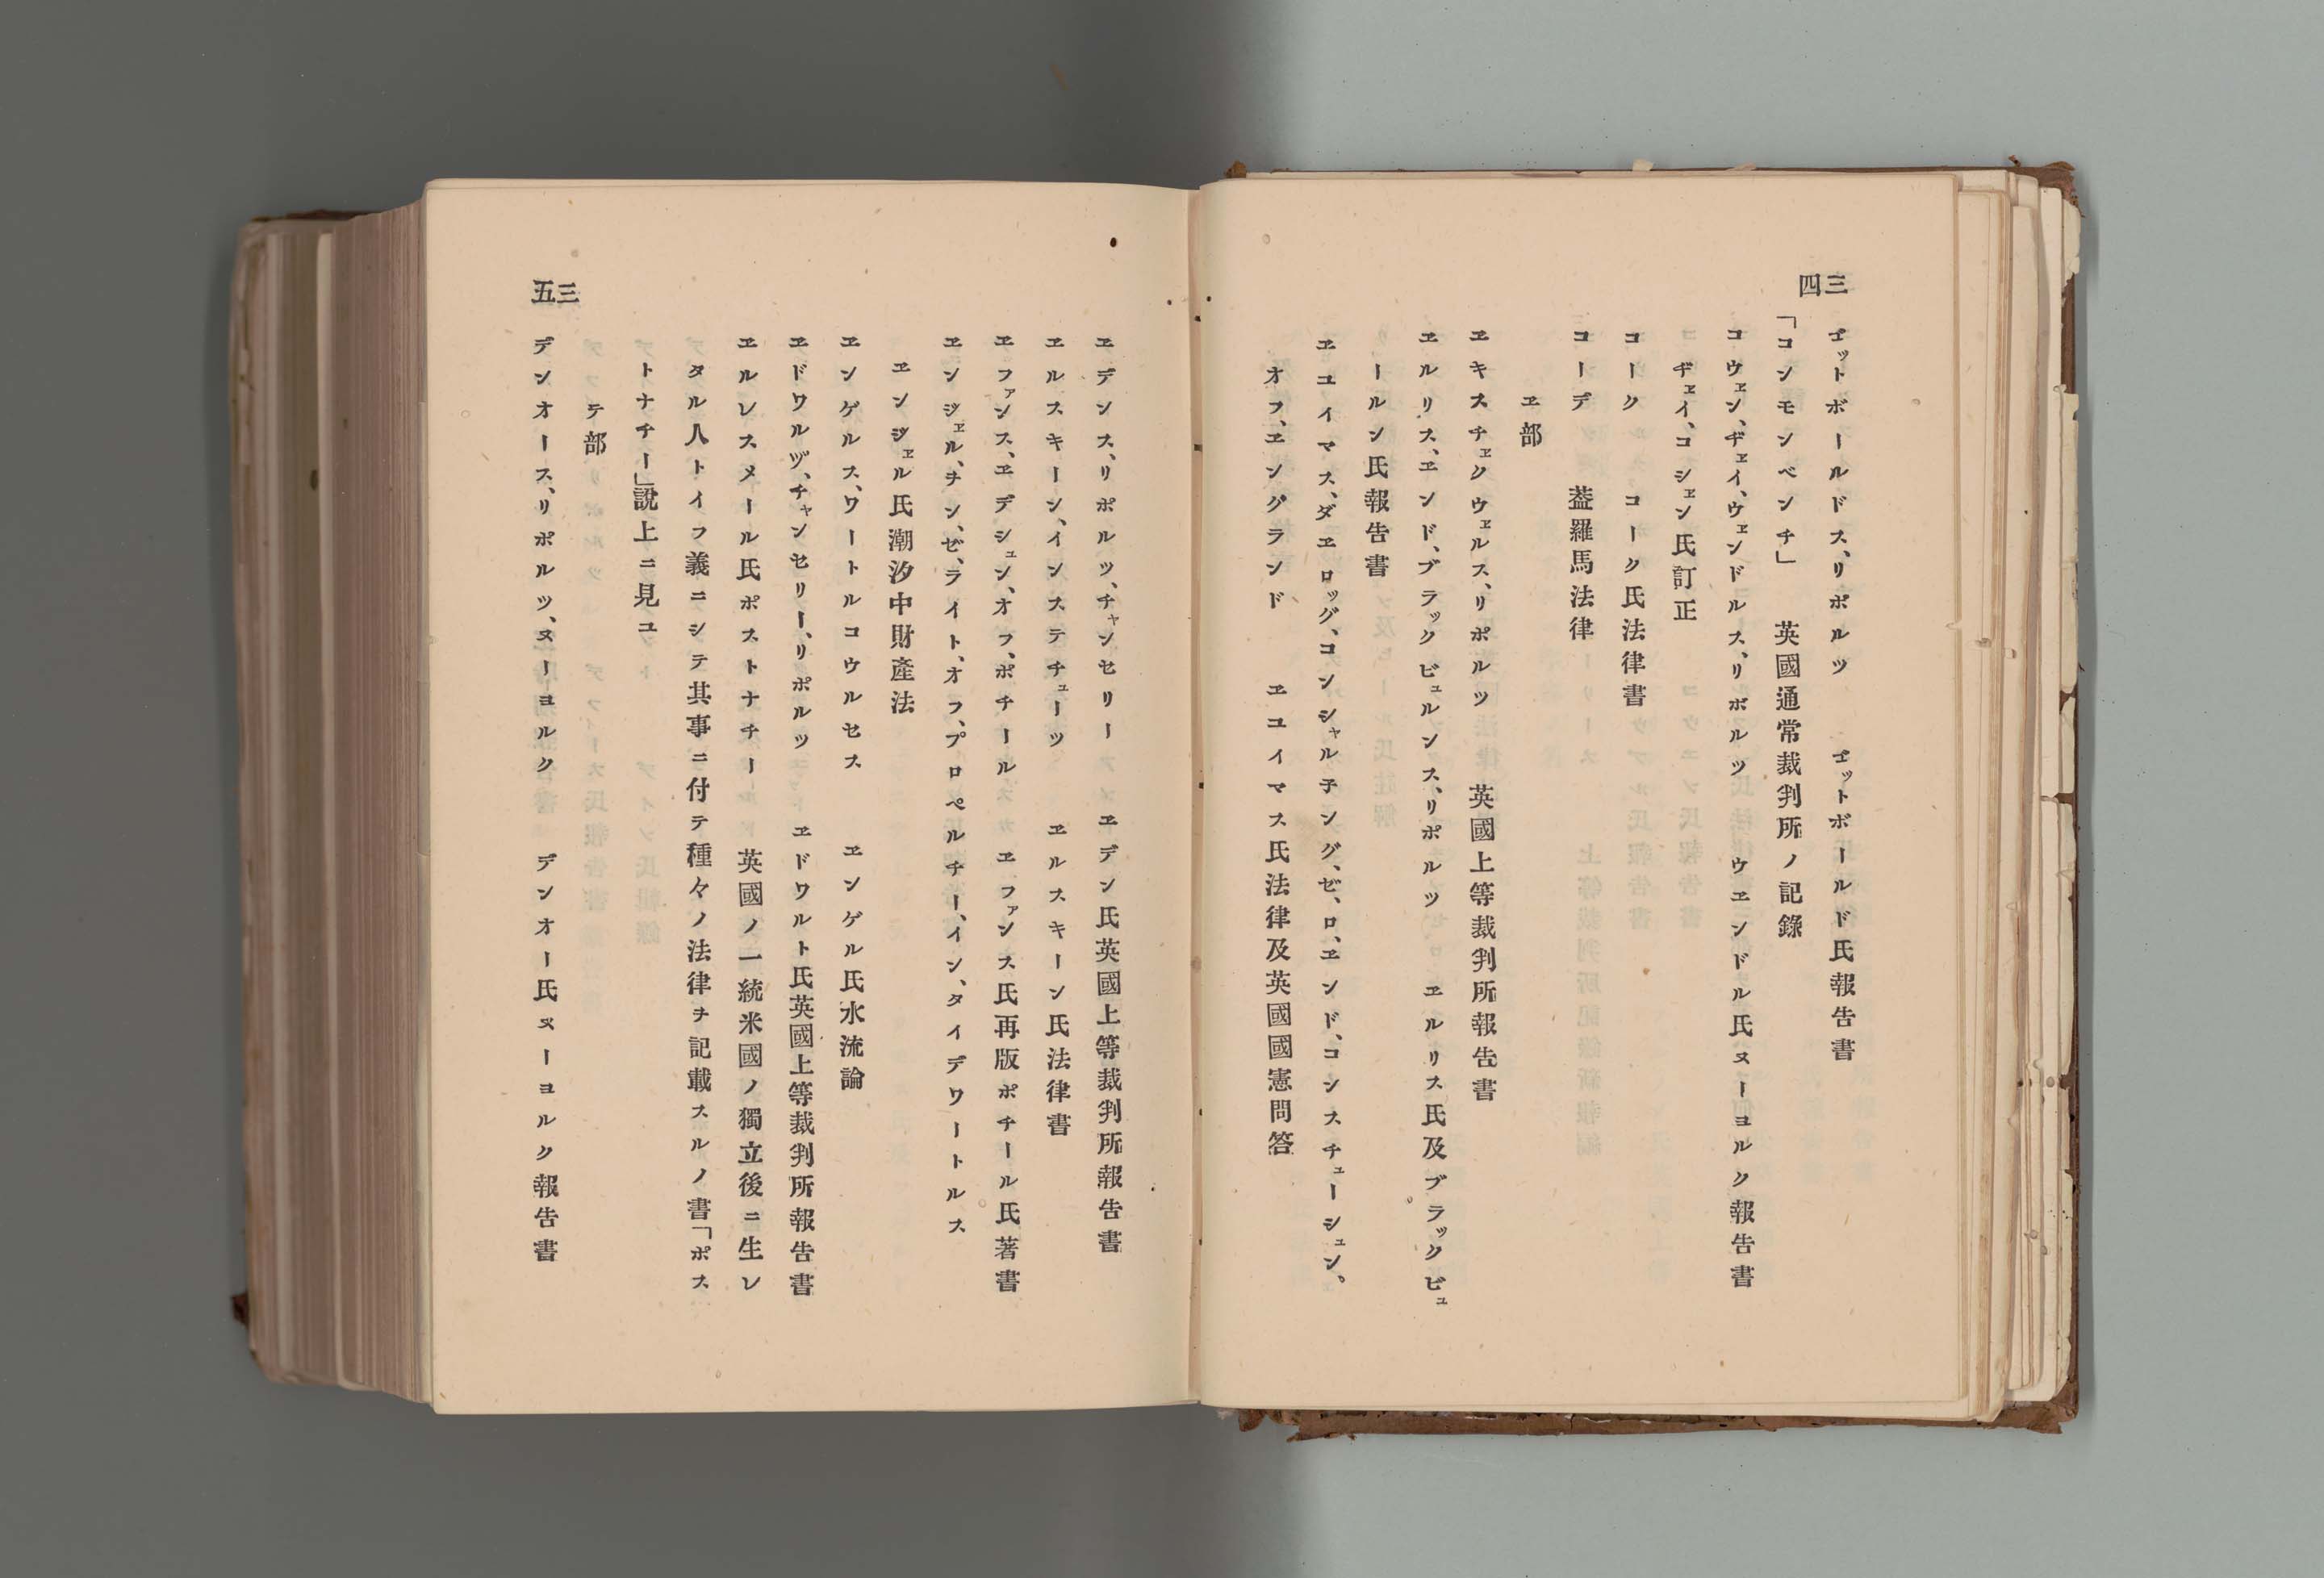 三四
ゴットボールドス、リポルツ　ゴットボールド氏報告書
「コンモンベンチ」　英國通常裁判所ノ記錄
コウェン、ヂェイ、ウェンドルス、リポルツ　ウエンドル氏ヌーヨルク報告書
ヂェイ、コシェン氏訂正
コーク　コーク氏法律書
コーデ　葢羅馬法律
ヱ部
ヱキスチェクウェルス、リポルツ　英國上等裁判所報告書
ヱルリス、ヱンド、ブラックビュルンス、リポルツ　ヱルリス氏及ブラックビュ
ールン氏報告書
ヱユイマス、ダヱロッグ、コンシャル子ング、ゼ、ロ、ヱンド、コンスチューシュン、
オフ、ヱングランド　ヱユイマス氏法律及英國國憲問答
三五
ヱデンス、リポルツ、チャンセリー　ヱデン氏英國上等裁判所報告書
ヱルスキーン、インステチューツ　ヱルスキーン氏法律書
ヱファンス、ヱデシュン、オフ、ポチール　ヱファンス氏再版ポチール氏著書
ヱンジェル、ヲン、ゼ、ライト、オフ、プロペルチー、イン、タイデワートルス
ヱンジェル氏潮汐中財產法
ヱンゲルス、ワートルコウルセス　ヱンゲル氏水流論
ヱドワルヅ、チャンセリー、リポルツ　ヱドワルト氏英國上等裁判所報告書
ヱルレスメール氏ポストナチー　英國ノ一統米國ノ獨立後ニ生レ
タル人トイフ義ニシテ其事ニ付テ種々ノ法律ヲ記載スルノ書「ポス
トナチー」說上ニ見ユ
テ部
デンオース、リポルツ、ヌーヨルク　デンオー氏ヌーヨルク報告書